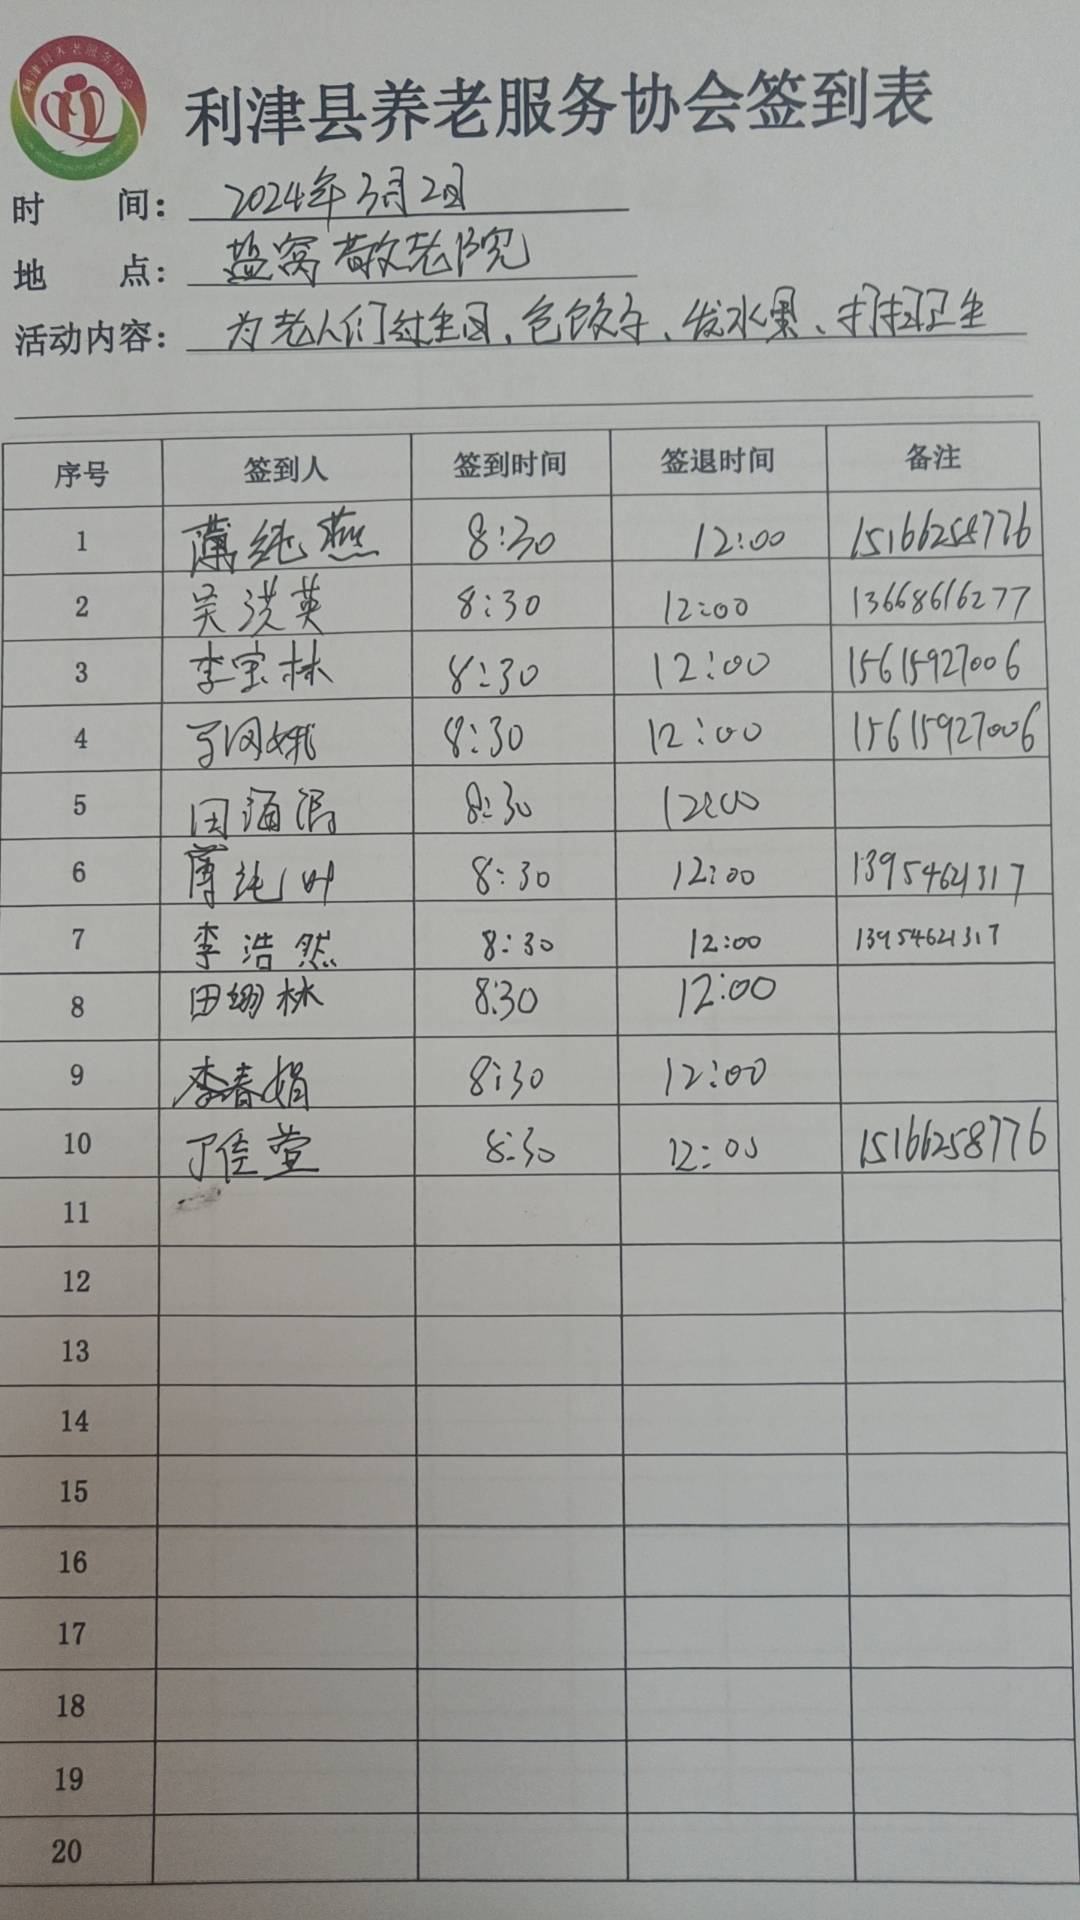 利津县养老服务协会
利津县养老服务协会签到表
时 间: 2024年3月2日
地 点: 盐窝敬老院
活动内容: 为老人们过生日,包饺子、发水果、打扫卫生
序号 签到人 签到时间 签退时间 备注
1 薄纯燕 8:30 12:00 15166258776
2 吴洪英 8:30 12:00 13668616277
3 李宝林 8:30 12:00 15615927006
4 8:30 12:00 15615927006
5 田海涓 8:30 12:00
6 薄纯叶 8:30 12:00 13954621317
7 李浩然 8:30 12:00 13954621317
8 田翊林 8:30 12:00
9 李春娟 8:30 12:00
10 丁佳萱 8:30 12:00 15166258776
11
12
13
14
15
16
17
18
19
20